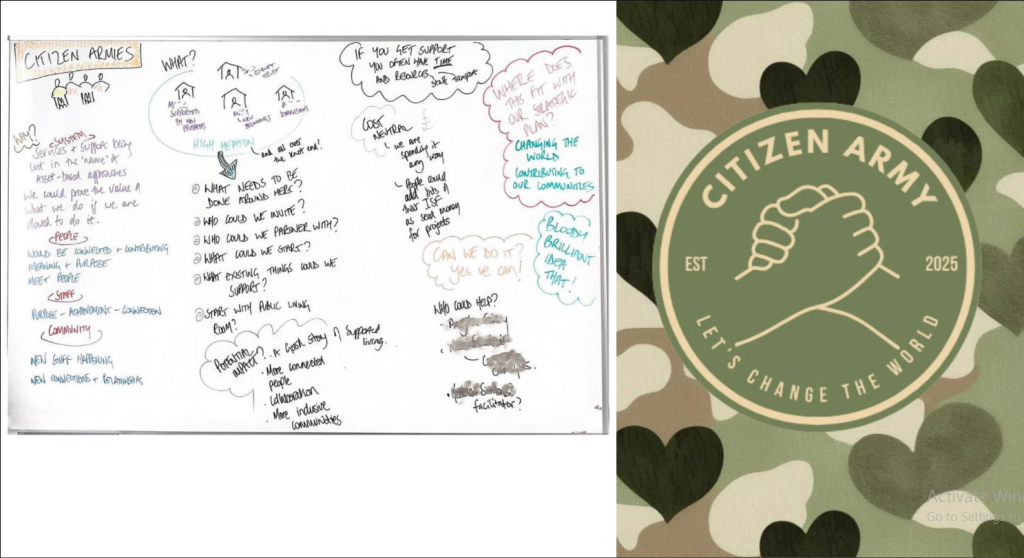 CITIZEN ARMIES
WHY?
SYSTEM
Services + Support being
cut in the 'name' of
Asset-based approaches
We could prove the value of
what we do if we are
allowed to do it.
PEOPLE
WOULD BE CONNECTED + CONTRIBUTING
MEANING + PURPOSE
MEET PEOPLE
STAFF
PURPOSE - ACHIEVEMENT - CONNECTION
COMMUNITY
NEW STUFF HAPPENING
NEW CONNECTIONS + RELATIONSHIPS
WHAT?
SUPPORTED
BY
NEW
CONNECTIONS
HIGH HEATON
and all over
the
end!
WHAT NEEDS TO BE
DONE AROUND HERE?
WHO COULD WE INVITE?
WHO COULD WE PARTNER WITH?
WHAT COULD WE START?
WHAT EXISTING THINGS COULD WE
SUPPORT?
START WITH PUBLIC LIVING
ROOM?
POTENTIAL
IMPACT?
A Good story of supported
living.
More connected
people
Collaboration
More inclusive
communities
IF YOU GET SUPPORT
YOU OFTEN HAVE TIME
AND RESOURCES
Staff Transport
COST
NEUTRAL
we are
spending it
any way
People could
add bits of
their ISF
as seed money
for projects
WHERE DOES
THIS FIT WITH
OUR STRATEGIC
PLAN?
CHANGING THE
WORLD
CONTRIBUTING TO
OUR COMMUNITIES
CAN WE DO IT?
Yes we can!
BLOODY
BRILLIANT
IDEA
THAT!
WHO COULD HELP?
facilitator?
CITIZEN ARMY
EST
2025
LET'S CHANGE THE WORLD
Activate Win
Go to Settings to